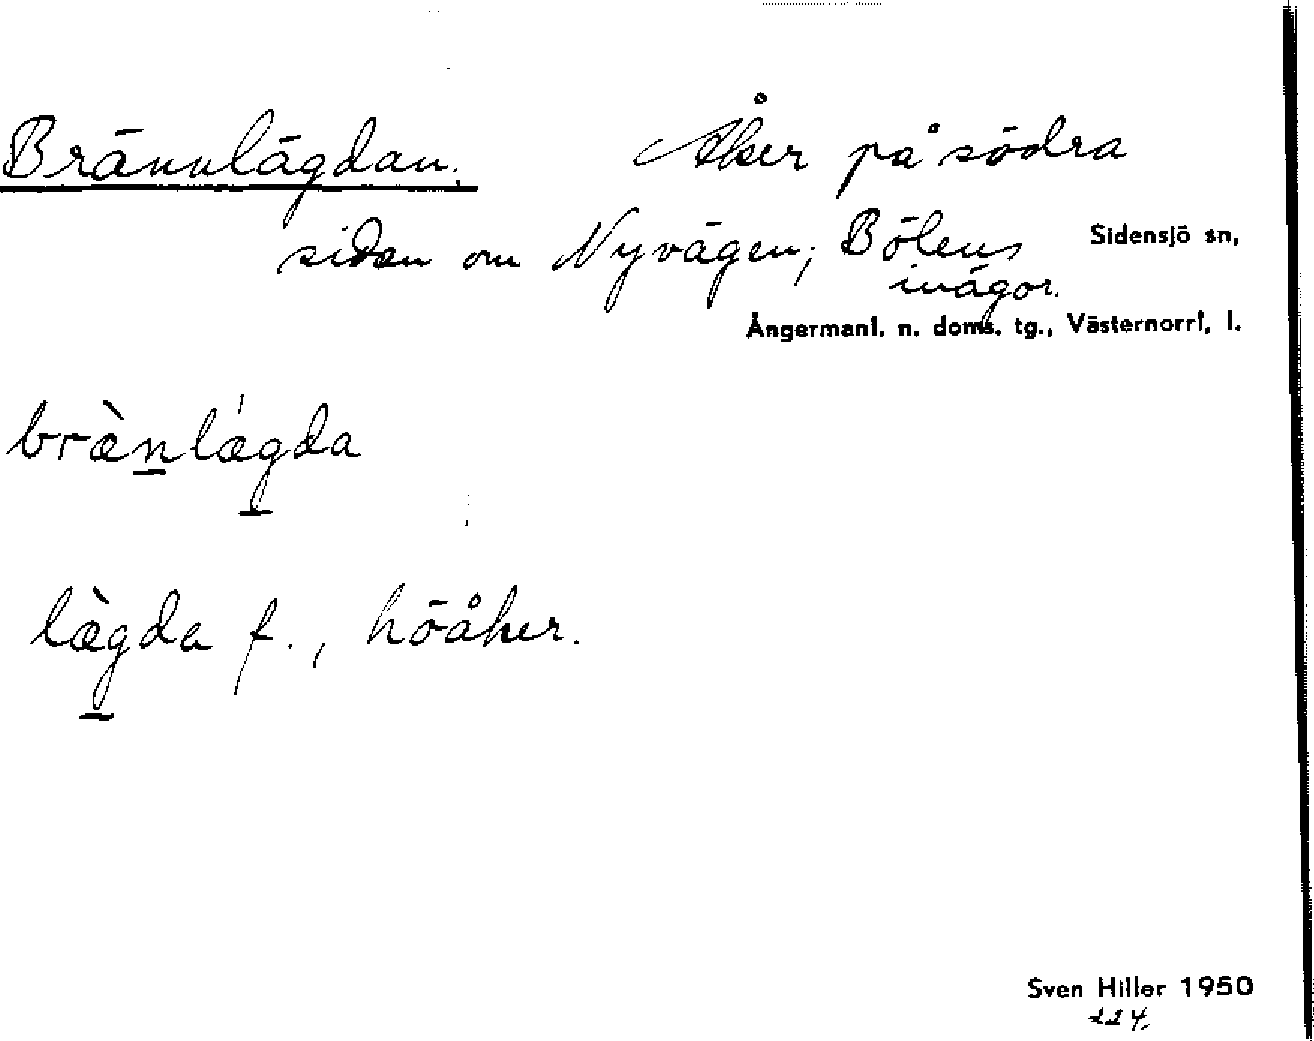 Brännlägdan. Åker på södra
sidan om Nyvägen; Bölens
inägor.
Sidensjö sn,
Ångermanl. n. doms. tg., Västernorrl. l.
bræ̀nlǽgda
læ̀gda f., höåker.
Sven Hiller 1950
224.